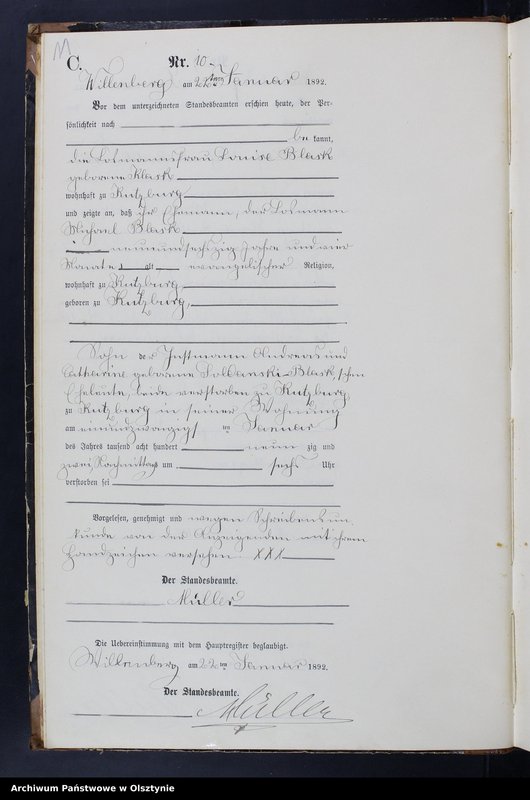 C.
Nr. 10
Willenberg am 22 ten Januar 1892.
Vor dem unterzeichneten Standesbeamten erschien heute, der Per-
sönlichkeit nach
be kannt,
die Losmannsfrau Louise Blask
geborene Klask
wohnhaft zu Kutzburg
und zeigte an, daß ihr Ehemann, der Losmann
Michael Blask
neunundsechzig Jahre und vier
Monate alt evangelischer Religion,
wohnhaft zu Kutzburg,
geboren zu Kutzburg,
Sohn der Instmann Andreas und
Catharine geborene Blask, schen
Eheleute, beide verstorben zu Kutzburg,
zu Kutzburg in seiner Wohnung
am einundzwanzigsten Januar
des Jahres tausend acht hundert neun zig und
zwei, Nachmittags um sechs Uhr
verstorben sei
Vorgelesen, genehmigt und wegen Schreibensun-
kunde von der Anzeigenden mit ihrem
Handzeichen versehen. XXX
Der Standesbeamte.
Müller
Die Uebereinstimmung mit dem Hauptregister beglaubigt.
Willenberg am 22 ten Januar 1892.
Der Standesbeamte.
Müller
Archiwum Państwowe w Olsztynie